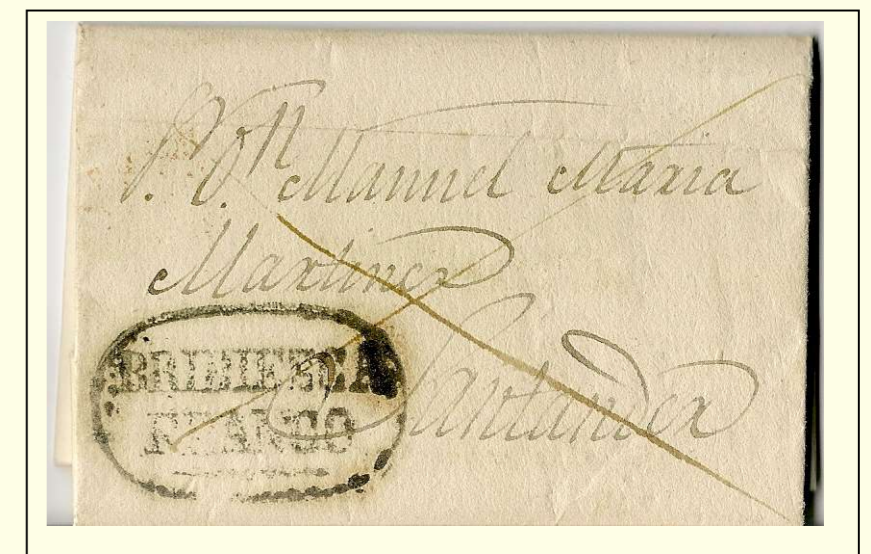 S. Dn Manuel Maria
Martinez
Santander
BRIBIESCA
FRANCO